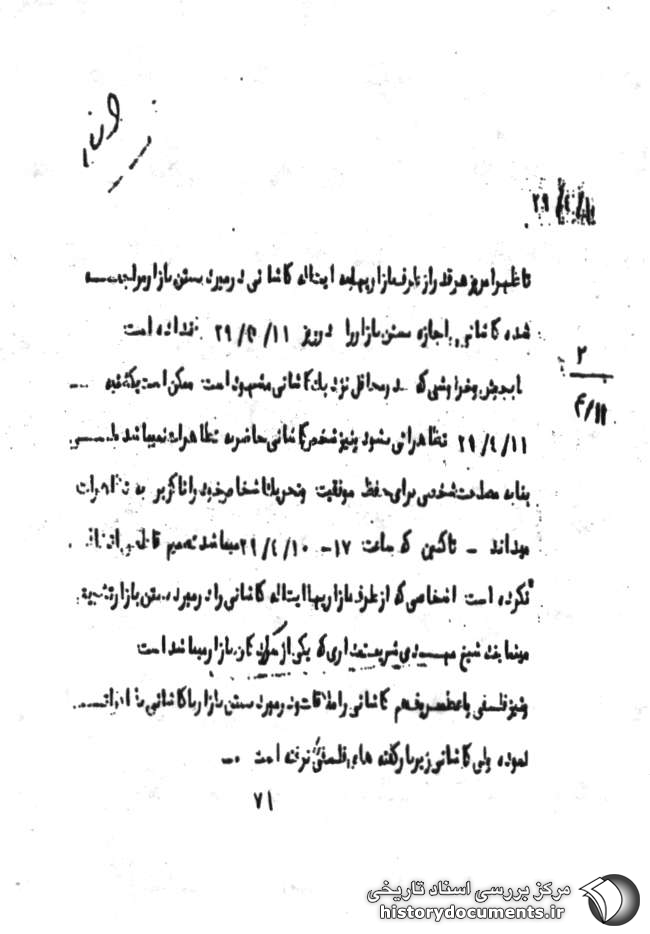 ۲۹/۴/۱۰
تا ظهر امروز هر قدر از طرف بازاریها به ایت اله کاشانی در مورد بستن بازار مراجعـــه
شده کاشانی اجازه بستن بازار را در روز ۲۹/۴/۱۱ نداده است
۲
۴/۱۱
با جوش و خروشی که در محافل نزدیک کاشانی مشهود است ممکن است یکشنبه
۲۹/۴/۱۱ تظاهراتی بشود و نیز شخص کاشانی حاضر به تظاهرات نمیباشد
بنا به مصلحت شخصی برای حفظ موفقیت و تحریک اشخاص خود را ناگزیر به تظاهرات
میداند - تاکنون که ساعت ۱۷ - ۲۹/۴/۱۰ میباشد تصمیم قاطعی
نکرده است اشخاصی که از طرف بازاریها ایت اله کاشانی را در مورد بستن بازار
مینمایند شیخ مهدی شریعتمداری که یکی از بازار میباشد است
و نیز فلسفی واعظ کاشانی را ملاقات و در مورد بستن بازار با کاشانی
نموده ولی کاشانی زیر بار گفته های فلسفی نرفته است
۷۱
مرکز بررسی اسناد تاریخی
historydocuments.ir